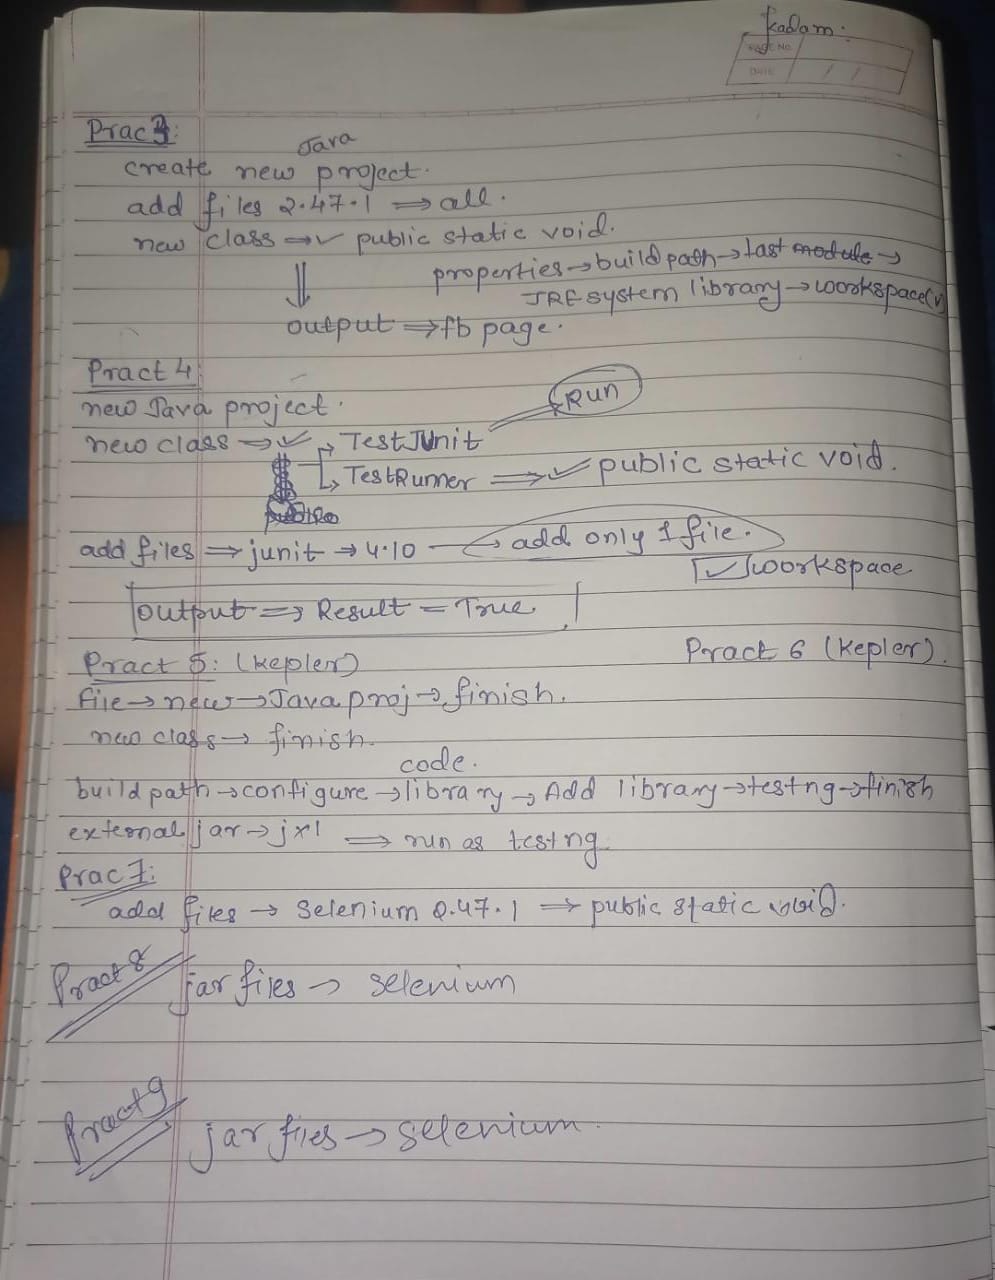 Kadam.
PAGE NO.
DATE / /
Prac 3:
Java
create new project.
add files 2.47.1 ⇒ all.
new class ⇒ ✓ public static void.
properties → build path → last module →
JRE system library → workspace(✓)
⇓
output ⇒ fb page.
Pract 4:
new Java project.
Run
new class → ✓ → TestJUnit
↳ TestRunner ⇒ ✓ public static void.
add files ⇒ junit → 4.10 → add only 1 file.
✓ workspace
output ⇒ Result = True
Pract 5: (kepler)
Pract 6 (kepler).
file → new → Java proj → finish.
new class → finish.
code.
build path → configure → library → Add library → testng → finish
external jar → jxl ⇒ run as testng
Prac 7:
add files → selenium 2.47.1 ⇒ public static void.
Pract 8
jar files → selenium
Pract 9
jar files → selenium.